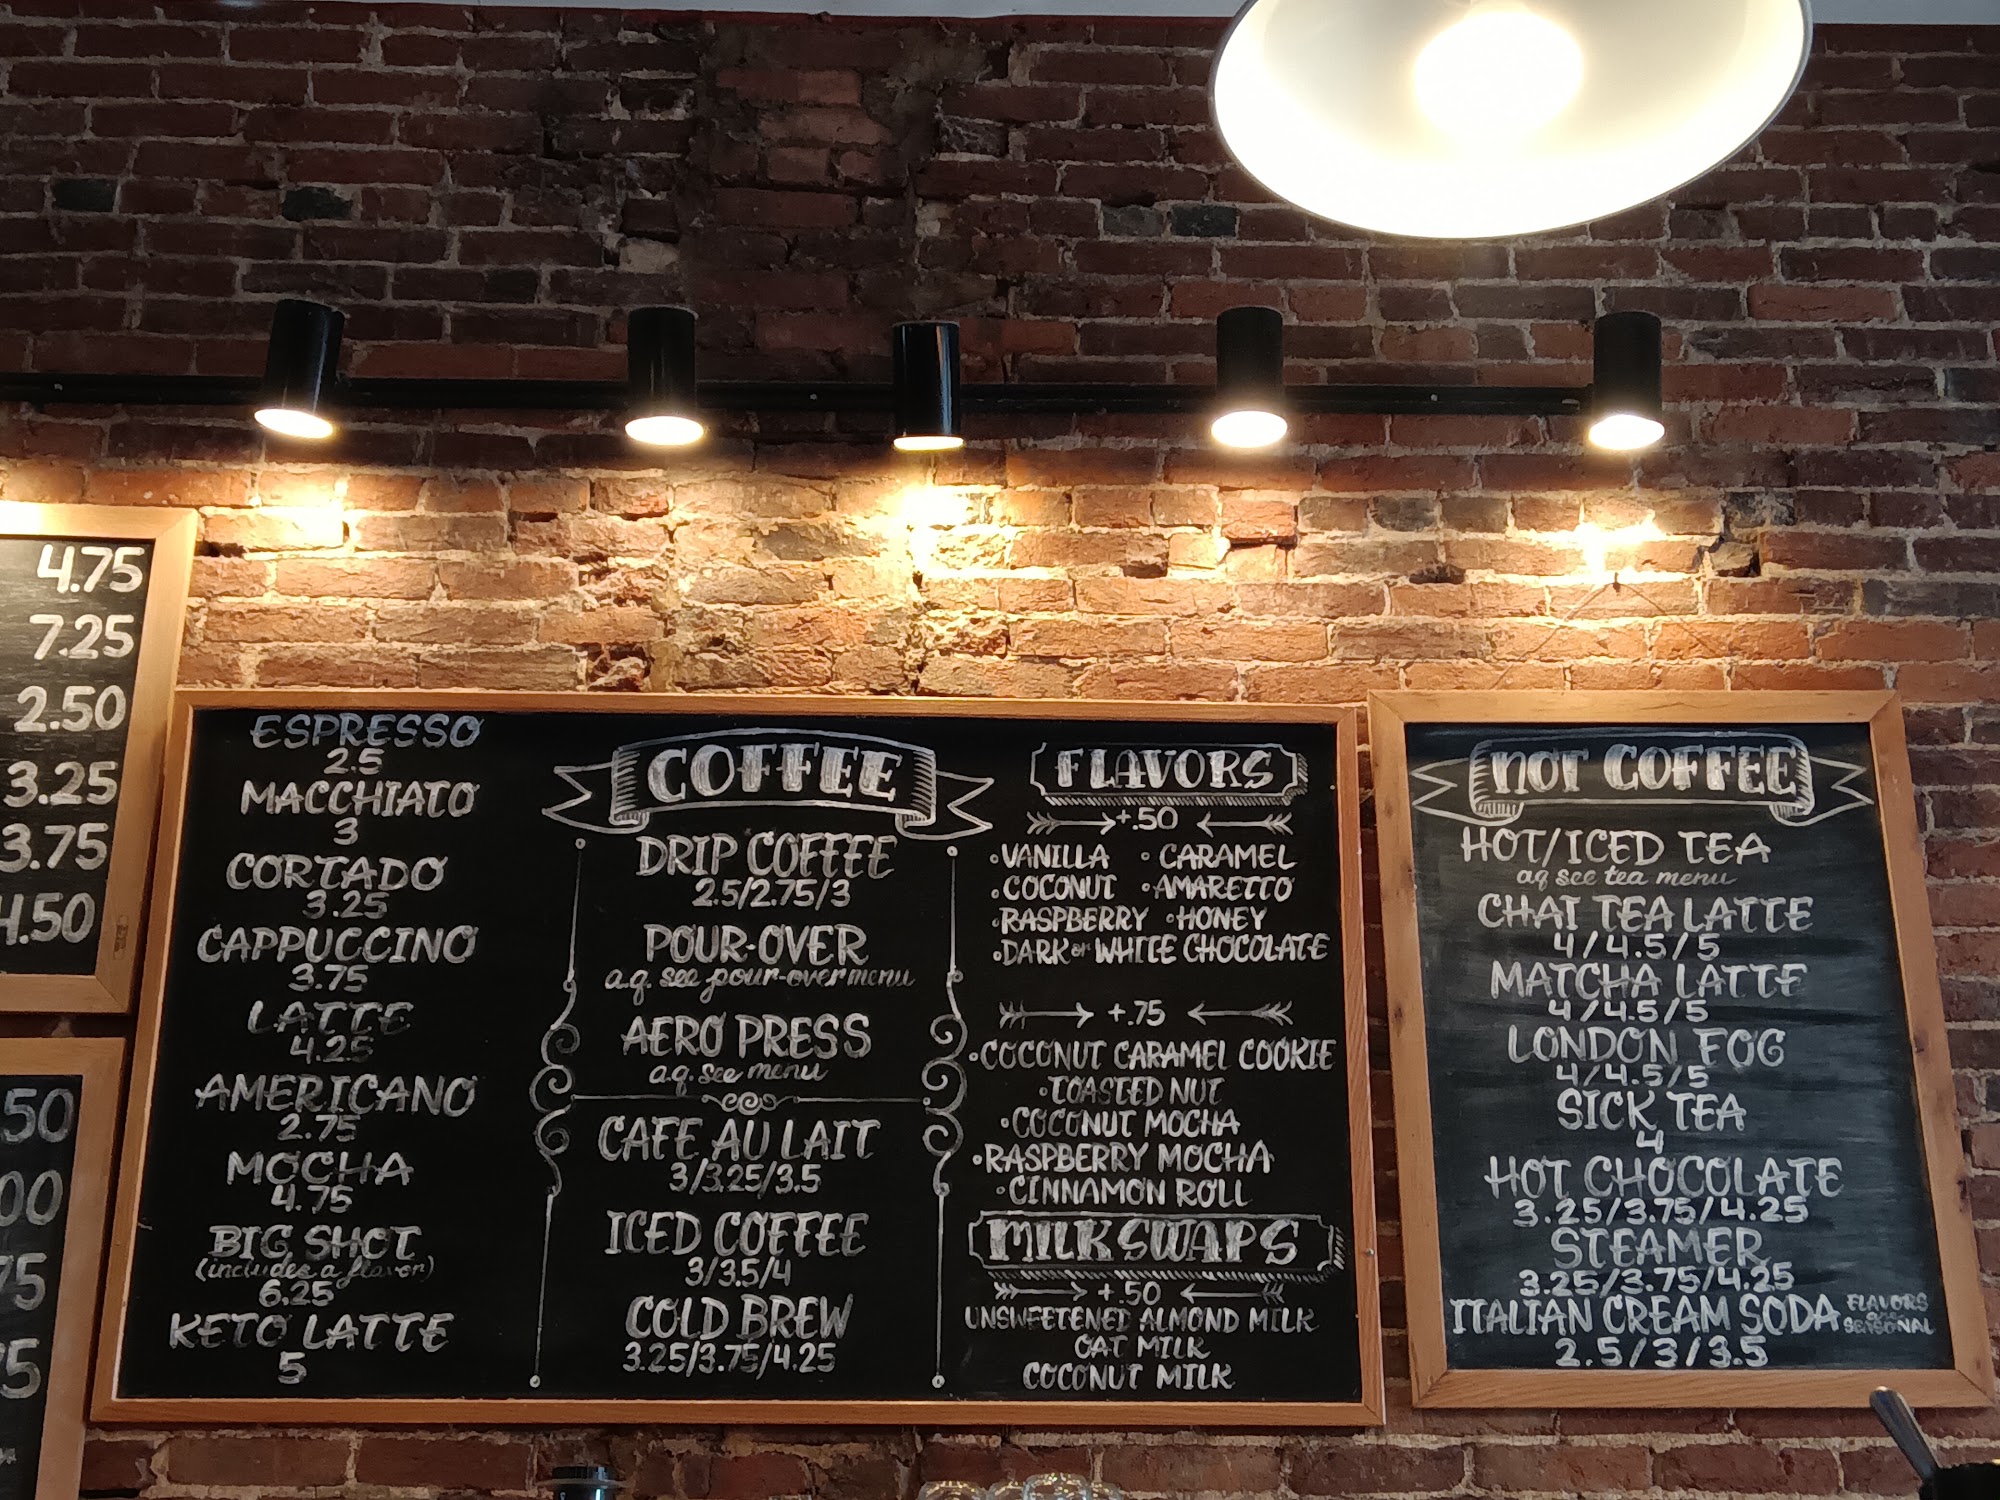 4.75
7.25
2.50
3.25
3.75
4.50
50
00
75
ESPRESSO
2.5
MACCHIATO
3
CORTADO
3.25
CAPPUCCINO
3.75
LATTE
4.25
AMERICANO
2.75
MOCHA
4.75
BIG SHOT
(includes a flavor)
6.25
KETO LATTE
5
COFFEE
DRIP COFFEE
2.5/2.75/3
POUR-OVER
a.q. see pour-over menu
AERO PRESS
a.q. see menu
CAFE AU LAIT
3/3.25/3.5
ICED COFFEE
3/3.5/4
COLD BREW
3.25/3.75/4.25
FLAVORS
+.50
•VANILLA •CARAMEL
•COCONUT •AMARETTO
•RASPBERRY •HONEY
•DARK or WHITE CHOCOLATE
+.75
•COCONUT CARAMEL COOKIE
•TOASTED NUT
•COCONUT MOCHA
•RASPBERRY MOCHA
•CINNAMON ROLL
MILK SWAPS
+.50
UNSWEETENED ALMOND MILK
OAT MILK
COCONUT MILK
NOT COFFEE
HOT/ICED TEA
aq see tea menu
CHAI TEA LATTE
4/4.5/5
MATCHA LATTE
4/4.5/5
LONDON FOG
4/4.5/5
SICK TEA
4
HOT CHOCOLATE
3.25/3.75/4.25
STEAMER
3.25/3.75/4.25
ITALIAN CREAM SODA FLAVORS
SEASONAL
2.5/3/3.5